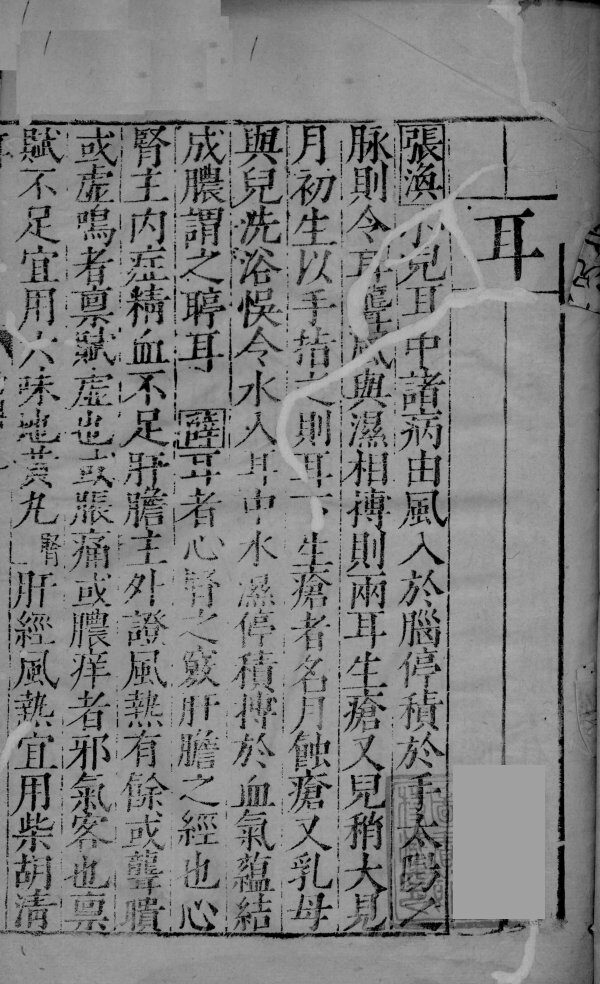 耳
張渙小兒耳中諸病由風入於腦停積於手太陽之
脉則令耳聾風與濕相摶則兩耳生瘡又兒稍大見
月初生以手指之則耳下生瘡者名月蝕瘡又乳母
與兒洗浴悞令水入耳中水濕停積摶於血氣蘊結
成膿謂之聤耳 薛耳者心腎之竅肝膽之經也心
腎主内症精血不足肝膽主外證風熱有餘或聾聵
或虛鳴者禀賦虛也或脹痛或膿痒者邪氣客也禀
賦不足宜用六味地黄丸腎肝經風熱宜用柴胡清